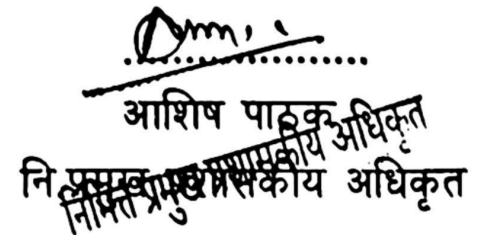 आशिष पाठक
नि. प्रमुख प्रशासकीय अधिकृत
निमित्त प्रमुख प्रशासकीय अधिकृत